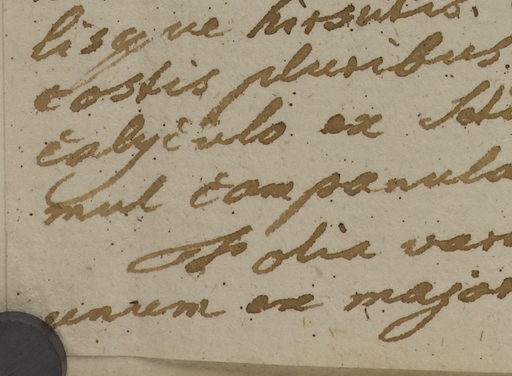 lisque hirsutis.
costis pluribus
calyculo ex
mul campanula
Folia vari
unum ex major